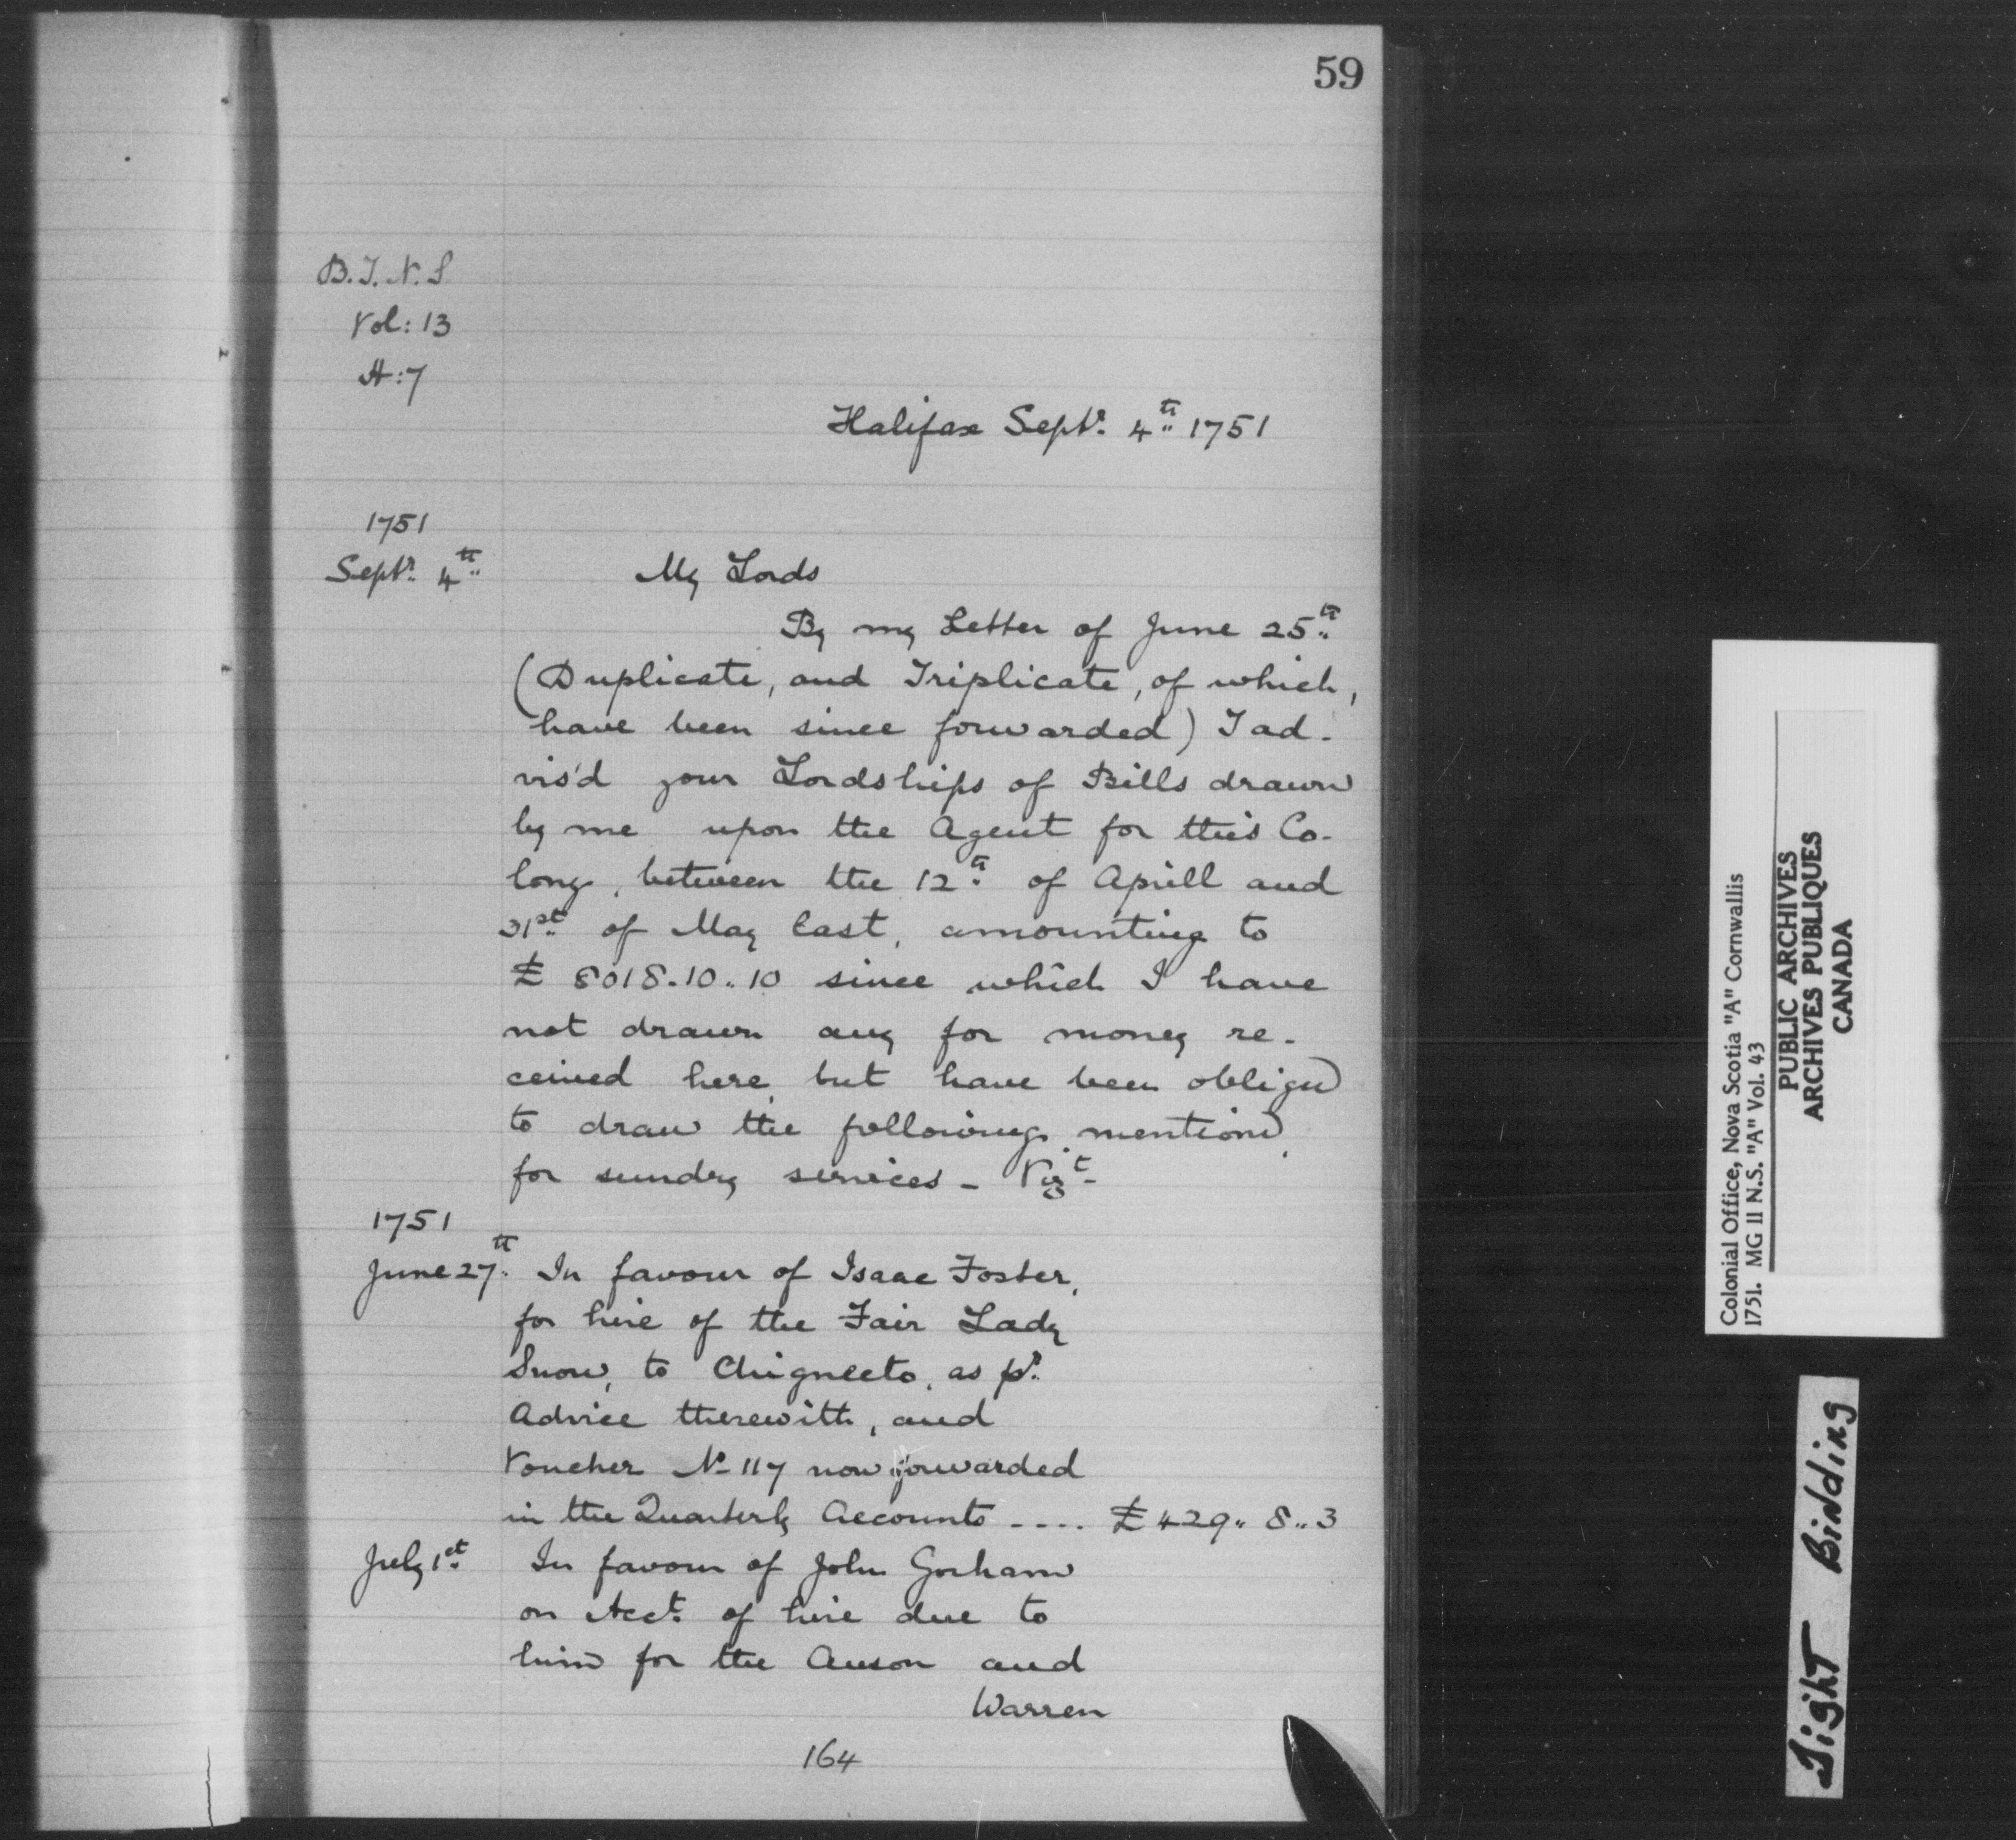 59
B.T.N.S
Vol: 13
H:7
Halifax Septr. 4th 1751
1751
Septr. 4th
My Lords
By my Letter of June 25th
(Duplicate, and Triplicate, of which,
have been since forwarded) I ad-
vis'd your Lordships of Bills drawn
by me upon the Agent for this Co-
lony, between the 12th of Aprill and
31st of May last, amounting to
£ 8018.10..10 since which I have
not drawn any for money re-
ceived here, but have been obliged
to draw the following, mentiond,
for sundry services - Vizt-
1751
June 27th In favour of Isaac Foster,
for hire of the Fair Lady
Snow, to Chignecto, as pr.
Advice therewith, and
Voucher No 117 now forwarded
in the Quarterly Accounts .... £429.. 8..3
July 1st In favour of John Gorham
on Acct. of hire due to
him for the Anson and
Warren
164
Colonial Office, Nova Scotia "A" Cornwallis
1751. MG 11 N.S. "A" Vol. 43
PUBLIC ARCHIVES
ARCHIVES PUBLIQUES
CANADA
Tight Binding